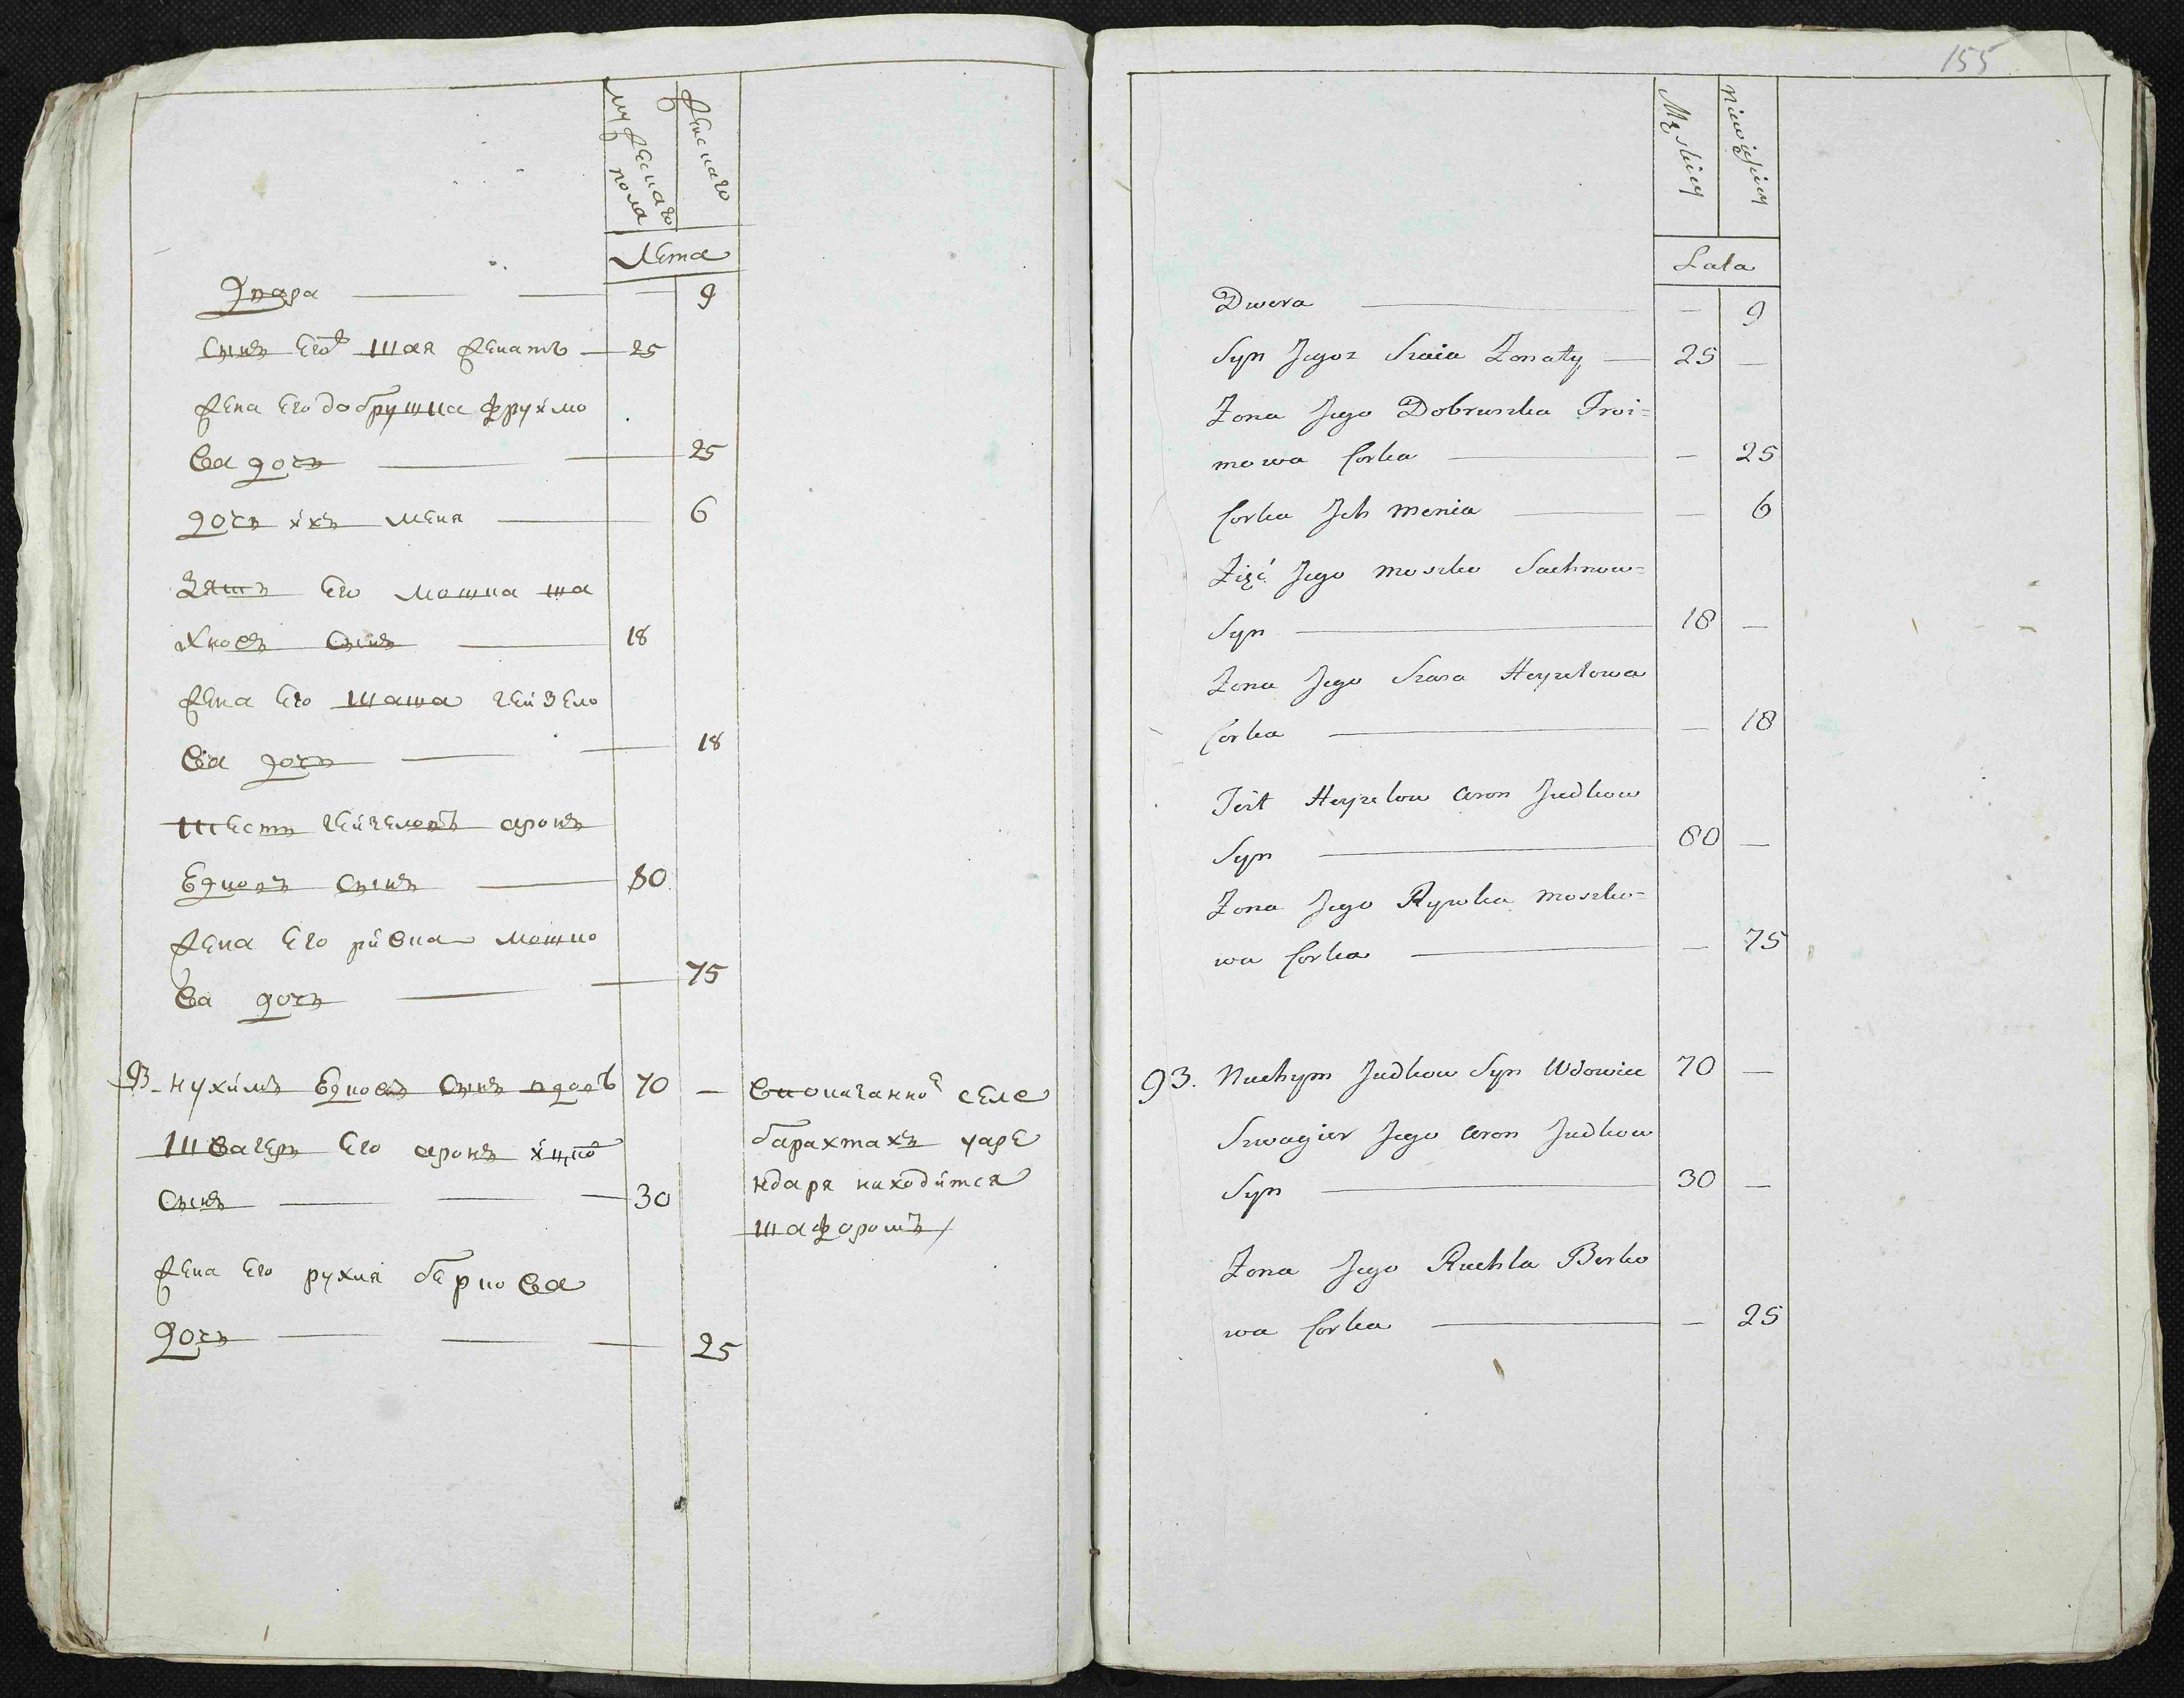 мужескаго пола
женскаго
Лета
Двара — — — 9
Сынъ Его Шая женатъ — 25
жена Его добрушка фруймо
ва дочь — — 25
дочь ихъ меня — 6
Зять Его мошка ша
хновъ Сынъ — 18
жена Его шаша гейзело
ва дочь — — 18
Тесть гейзеловъ аронъ
Едковъ Сынъ — 80
жена Его ривка мошко
ва дочь — — 75
93. нухимъ Едковъ Сынъ вдовъ 70 —
Швагеръ Его аронъ
Сынъ — — — 30
жена Его рухля берко ва
Дочь — — — 25
селе
барахтахъ уаре
ндаря находится
шафоромъ
155
Męskiey
Niewieściey
Lata
Dwora — — 9
Syn Jegoz Szaia Żonaty — 25 —
Żona Jego Dobruszka Froi=
mowa Corka — — 25
Corka Jch Menia — — 6
Zięć Jego Moszko Sachnow=
Syn — 18 —
Żona Jego Szasa Heyzelowa
Corka — — 18
Teść Heyzelow Aron Judkow
Syn — 80 —
Żona Jego Rywka Moszko=
wa Corka — — 75
93. Nuchym Judkow Syn Wdowiec 70 —
Szwagier Jego Aron Judkow
Syn — 30 —
Żona Jego Ruchla Berko
wa Corka — — 25